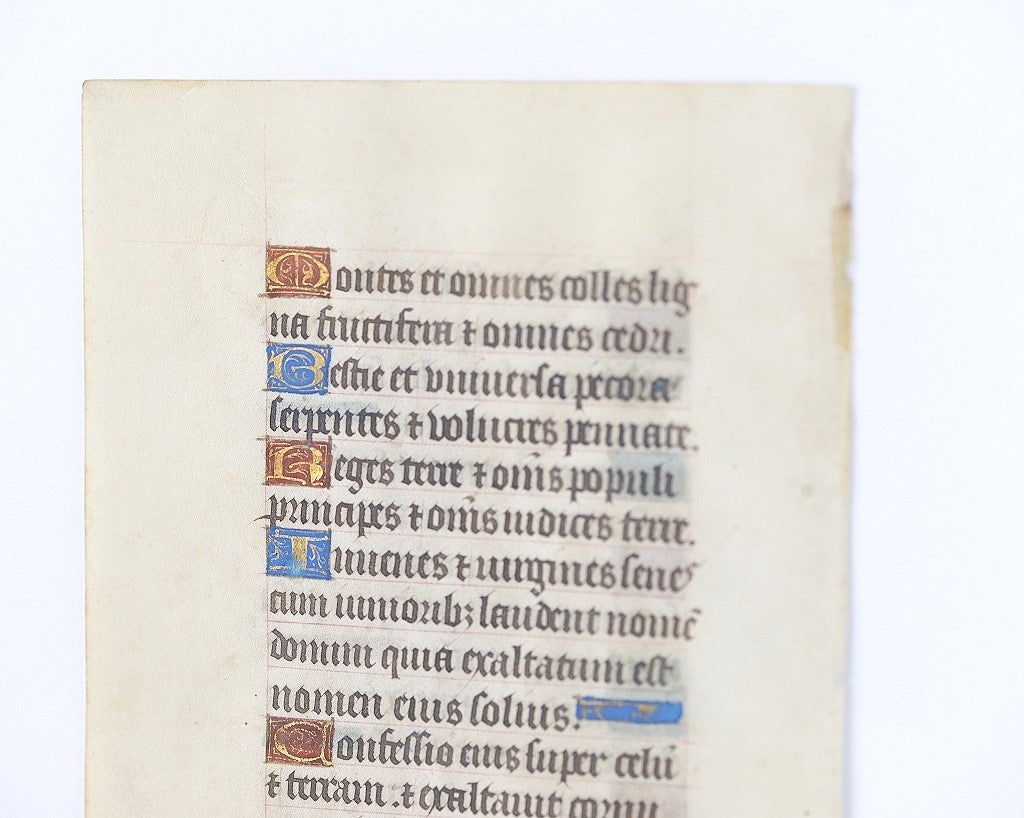 Montes et omnes colles lig
na fructifera ⁊ omnes cedri.
Bestie et vniuersa pecora
serpentes ⁊ volucres pennate.
Reges terre ⁊ om̄s populi
principes ⁊ om̄s iudices terre.
Iuuenes ⁊ uirgines senes
cum iunioribꝫ laudent nomē
domini quia exaltatum est
nomen eius solius.
Confessio eius super celū
⁊ terram . ⁊ exaltauit cornu